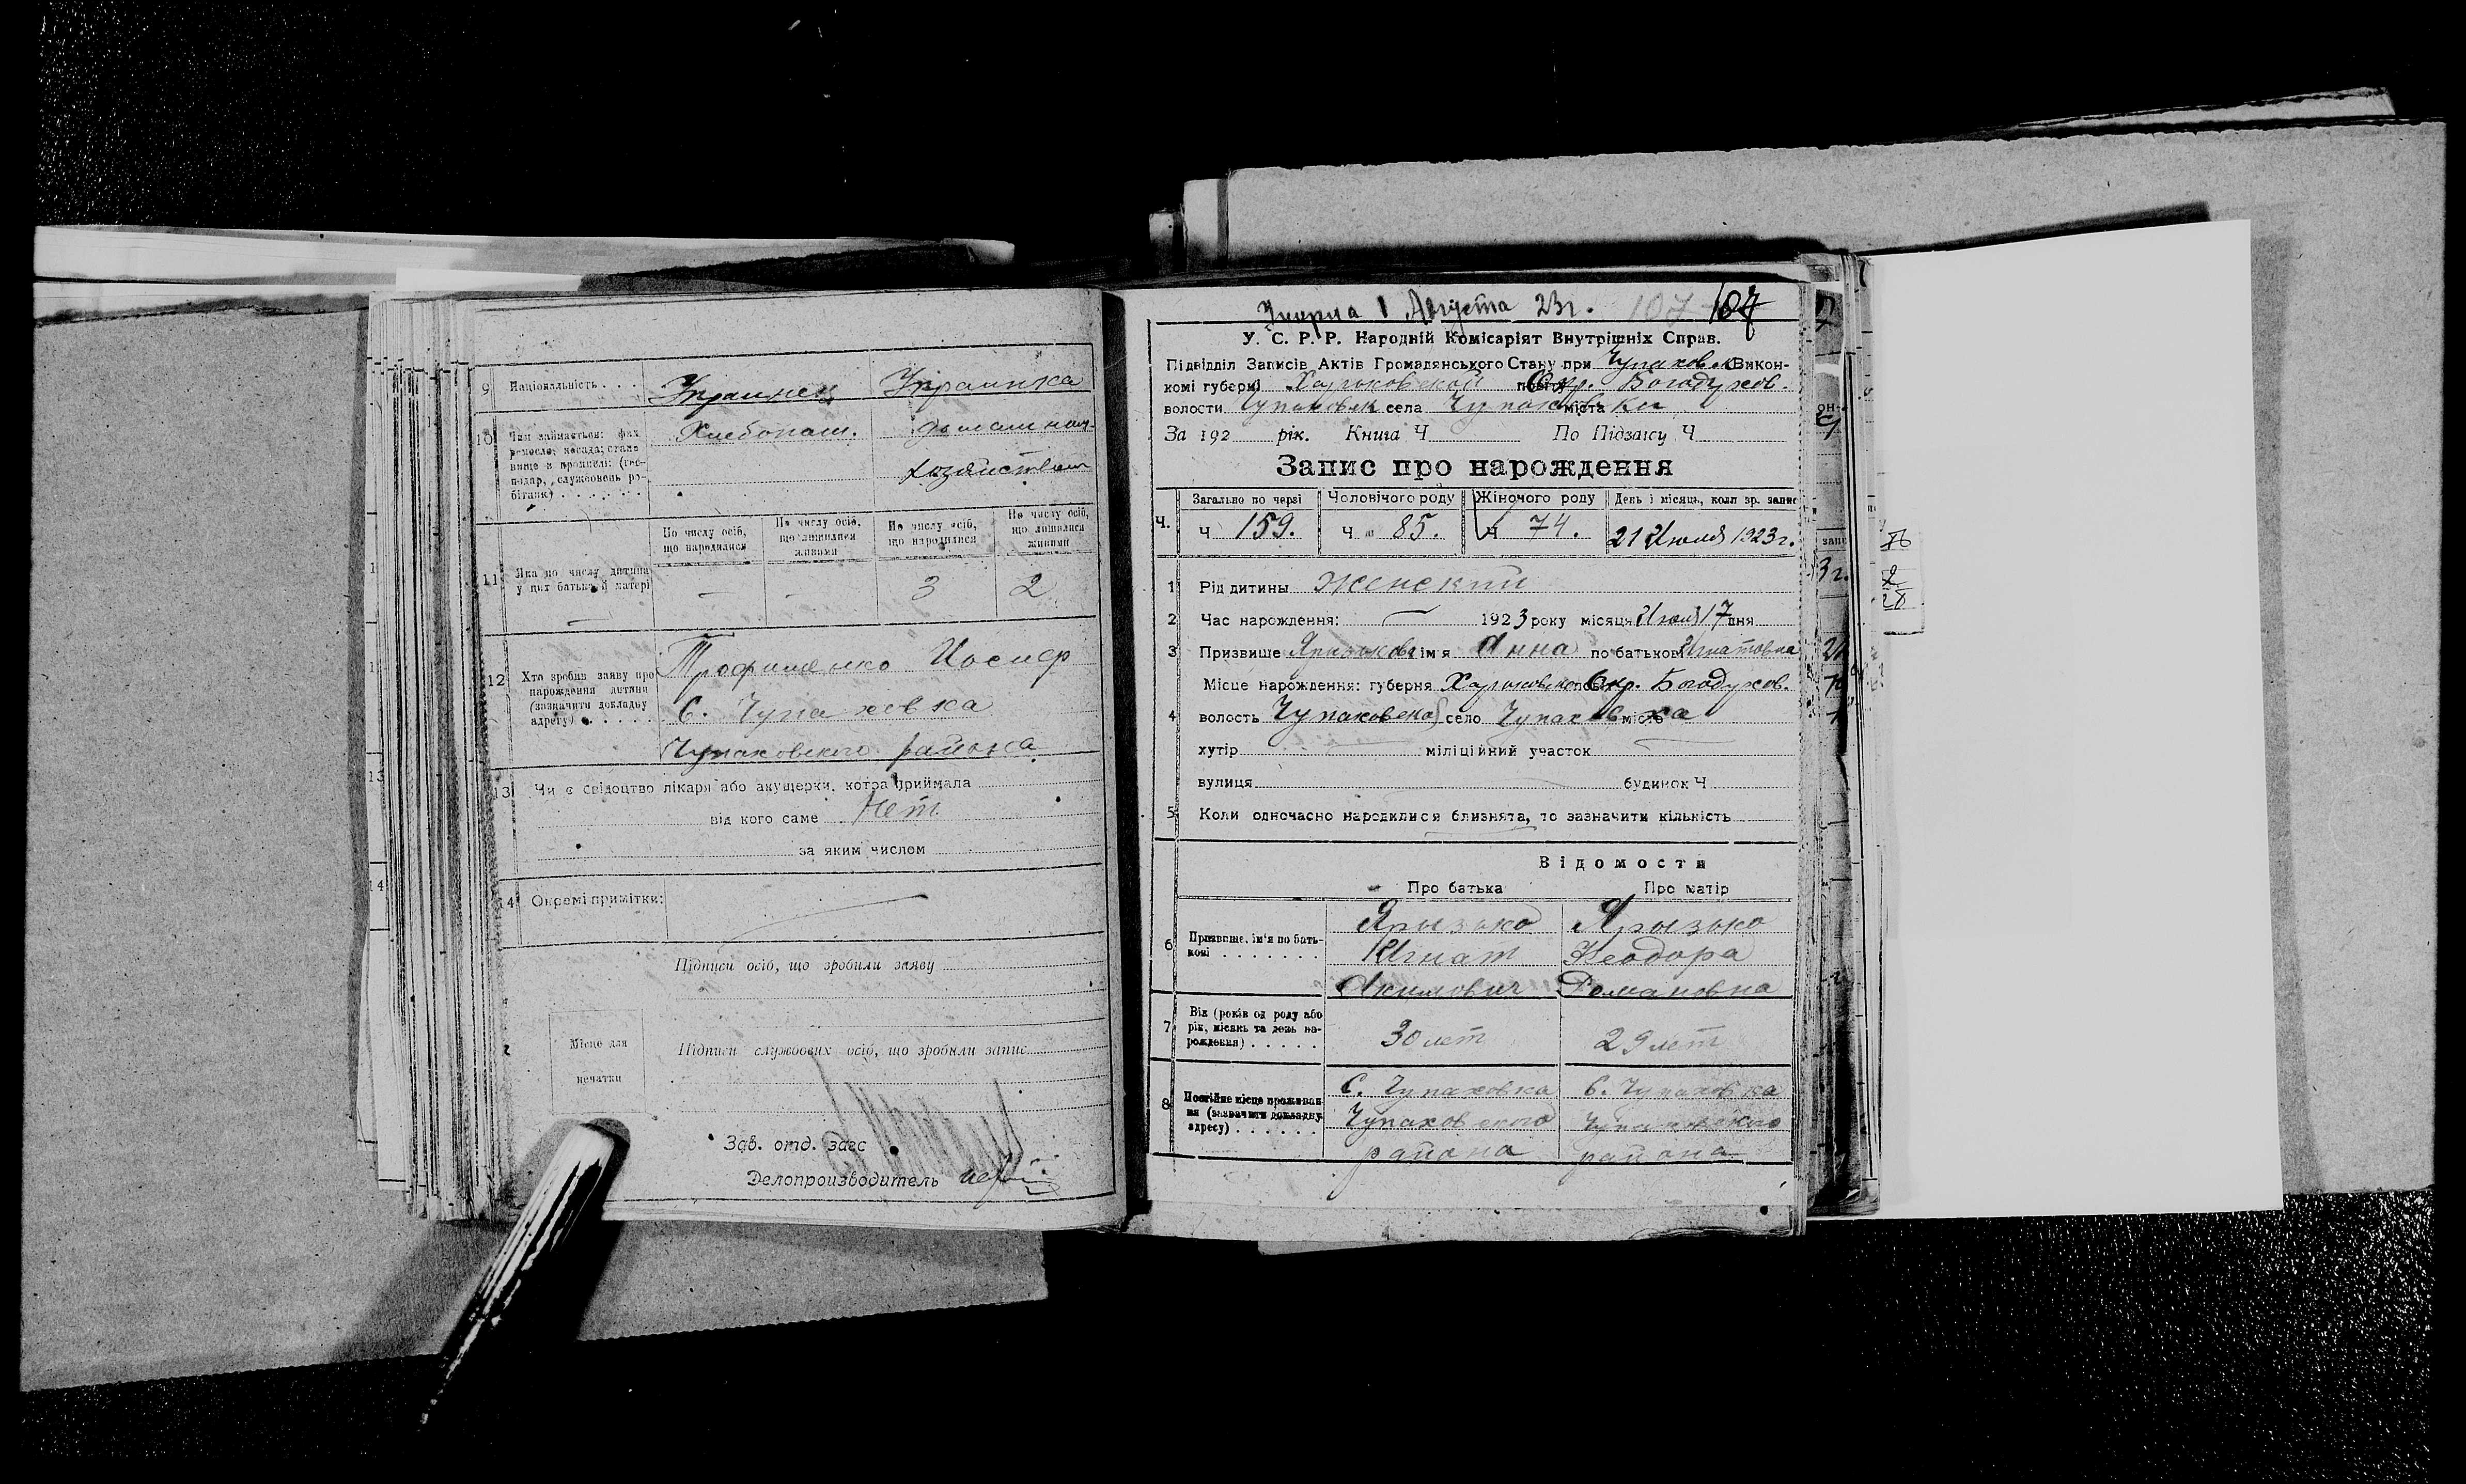 9 Національность . . . Украинец Украинка
10 Чим займається: фах, ремесло, посада; стано-
вище в промислі: (гос-
подар, службовець ро-
бітник) . . . . . . .
Хлебопаш. домашним
хозяйством
11 Яка по числу дитина
у цих батька й матері
По числу осіб,
що народилися
По числу осіб,
що лишилися
живими
По числу осіб,
що народилися
По числу осіб,
що лишилися
живими
— — 3 2
12 Хто зробив заяву про
народження дитини
(зазначити докладну
адресу) . . . . . .
Трофименко Иосиф
С. Чупаховка
Чупаховского района
13 Чи є свідоцтво лікаря або акушерки, котра приймала
від кого саме Нет
за яким числом
14 Окремі примітки:
Підписи осіб, що зробили заяву
Місце для
печатки
Підписи службових осіб, що зробили запис
Зав. отд. загс
Делопроизводитель
Умерла 1 Августа 23г. 107 107
У. С. Р. Р. Народній Комісаріят Внутрішніх Справ.
Підвідділ Записів Актів Громадянського Стану при Чупахов. Викон-
комі губерні Харьковской Окр. Богодухов.
волости Чупаховск села Чупаховки міста
За 192 рік. Книга Ч По Підзаїсу Ч
Запис про нарождення
Ч.
Загально по черзі Чоловічого роду Жіночого роду День і місяць, коли зр. запис
Ч 159. Ч 85. Ч 74. 21 Июля 1923г.
1 Рід дитини Женский
2 Час нарождення: — 1923 року місяця Июля 17 дня
3 Призвище ім'я Анна по батькові Игнатовна
4 Місце нарождення: губерня Харьковск Окр. Богодухов.
волость Чупаховская село Чупаховка місто
хутір міліційний участок
вулиця будинок Ч
5 Коли одночасно народилися близнята, то зазначити кількість
Відомости
Про батька Про матір
6 Призвище, ім'я по бать-
кові . . . . . . .
Ярызько Ярызько
Игнат Феодора
Акимович Романовна
7 Вік (років од роду або
рік, місяць та день на-
рождення) . . . . .
30 лет 29 лет
8 Постійне місце проживан-
ня (зазначити докладну
адресу) . . . . . . .
С. Чупаховка С. Чупаховка
Чупаховского Чупаховского
района района